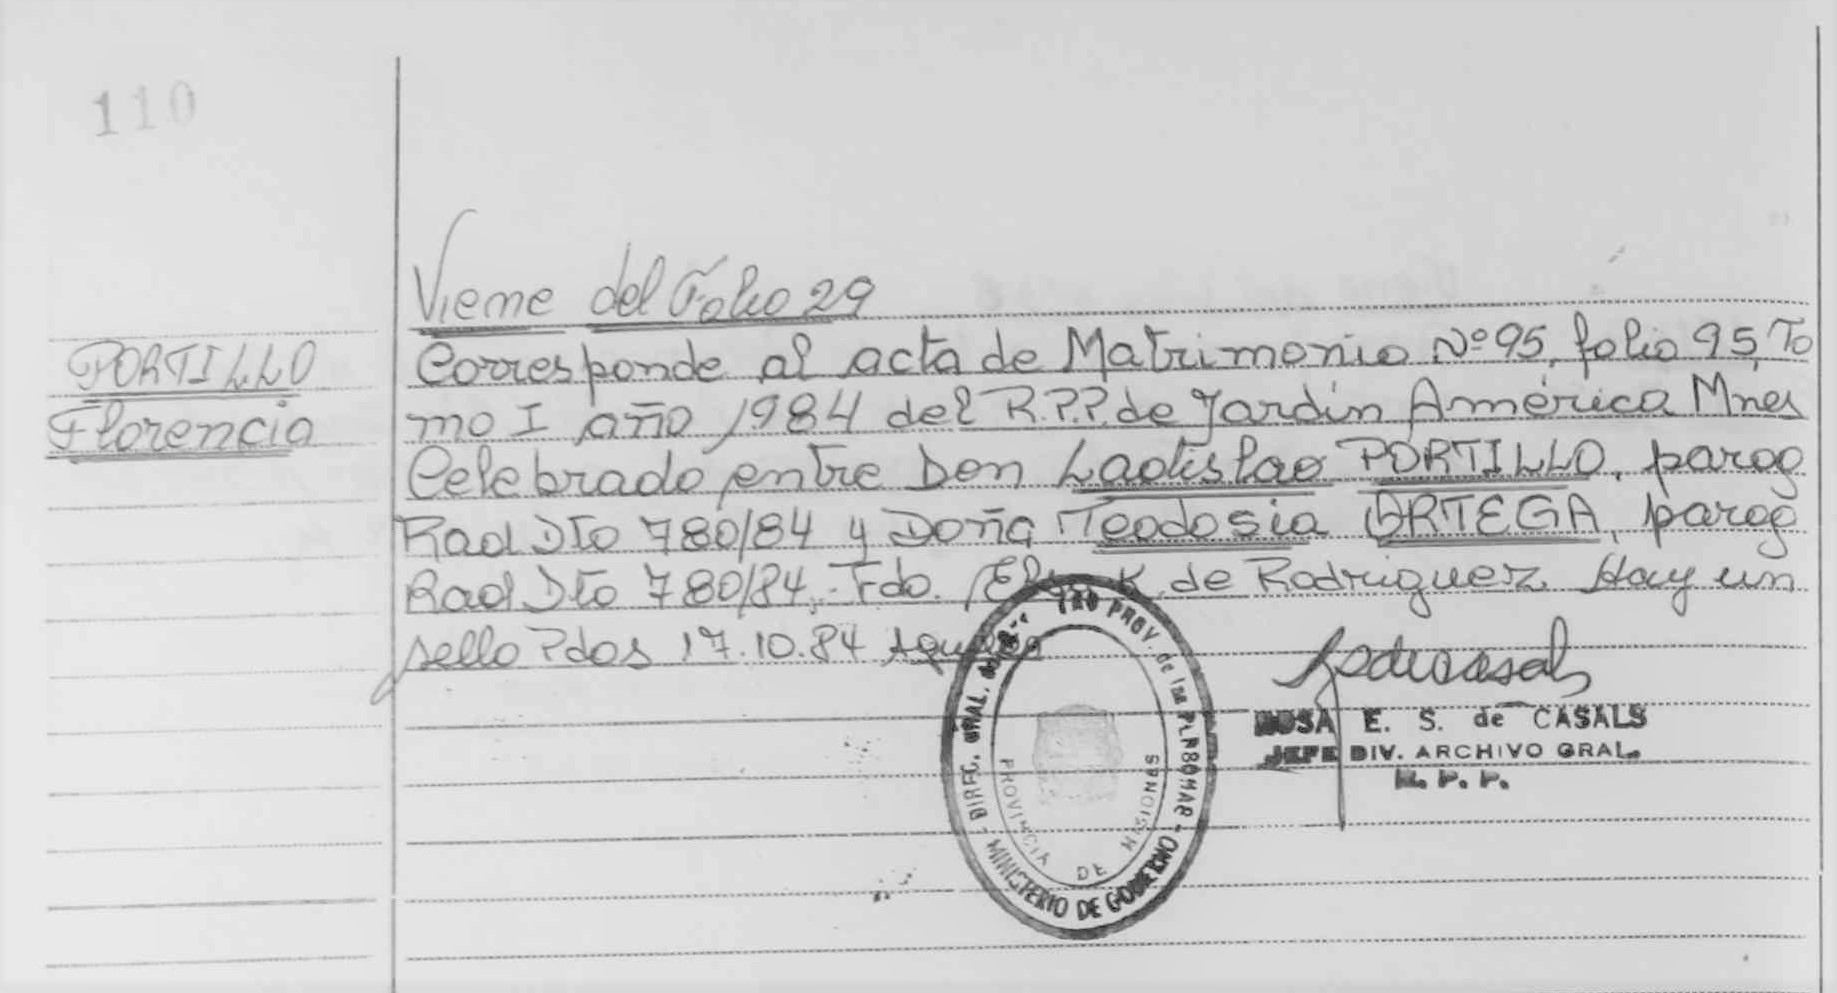 110
Viene del Folio 29
PORTILLO
Florencia
Corresponde al acta de Matrimonio Nº 95, folio 95, To
mo I año 1984 del R.P.P. de Jardín América Mnes
Celebrado entre Don Ladislao PORTILLO, parag
Rad Dto 780/84 y Doña Teodosia ORTEGA, parag
Rad Dto 780/84,- Fdo. K. de Rodriguez Hay un
sello Pdos 17.10.84
ROSA E. S. de CASALS
JEFE DIV. ARCHIVO GRAL.
R. P. P.
DIREC. GRAL. PROV. de las PERSONAS - MINISTERIO DE GOBIERNO -
PROVINCIA DE MISIONES